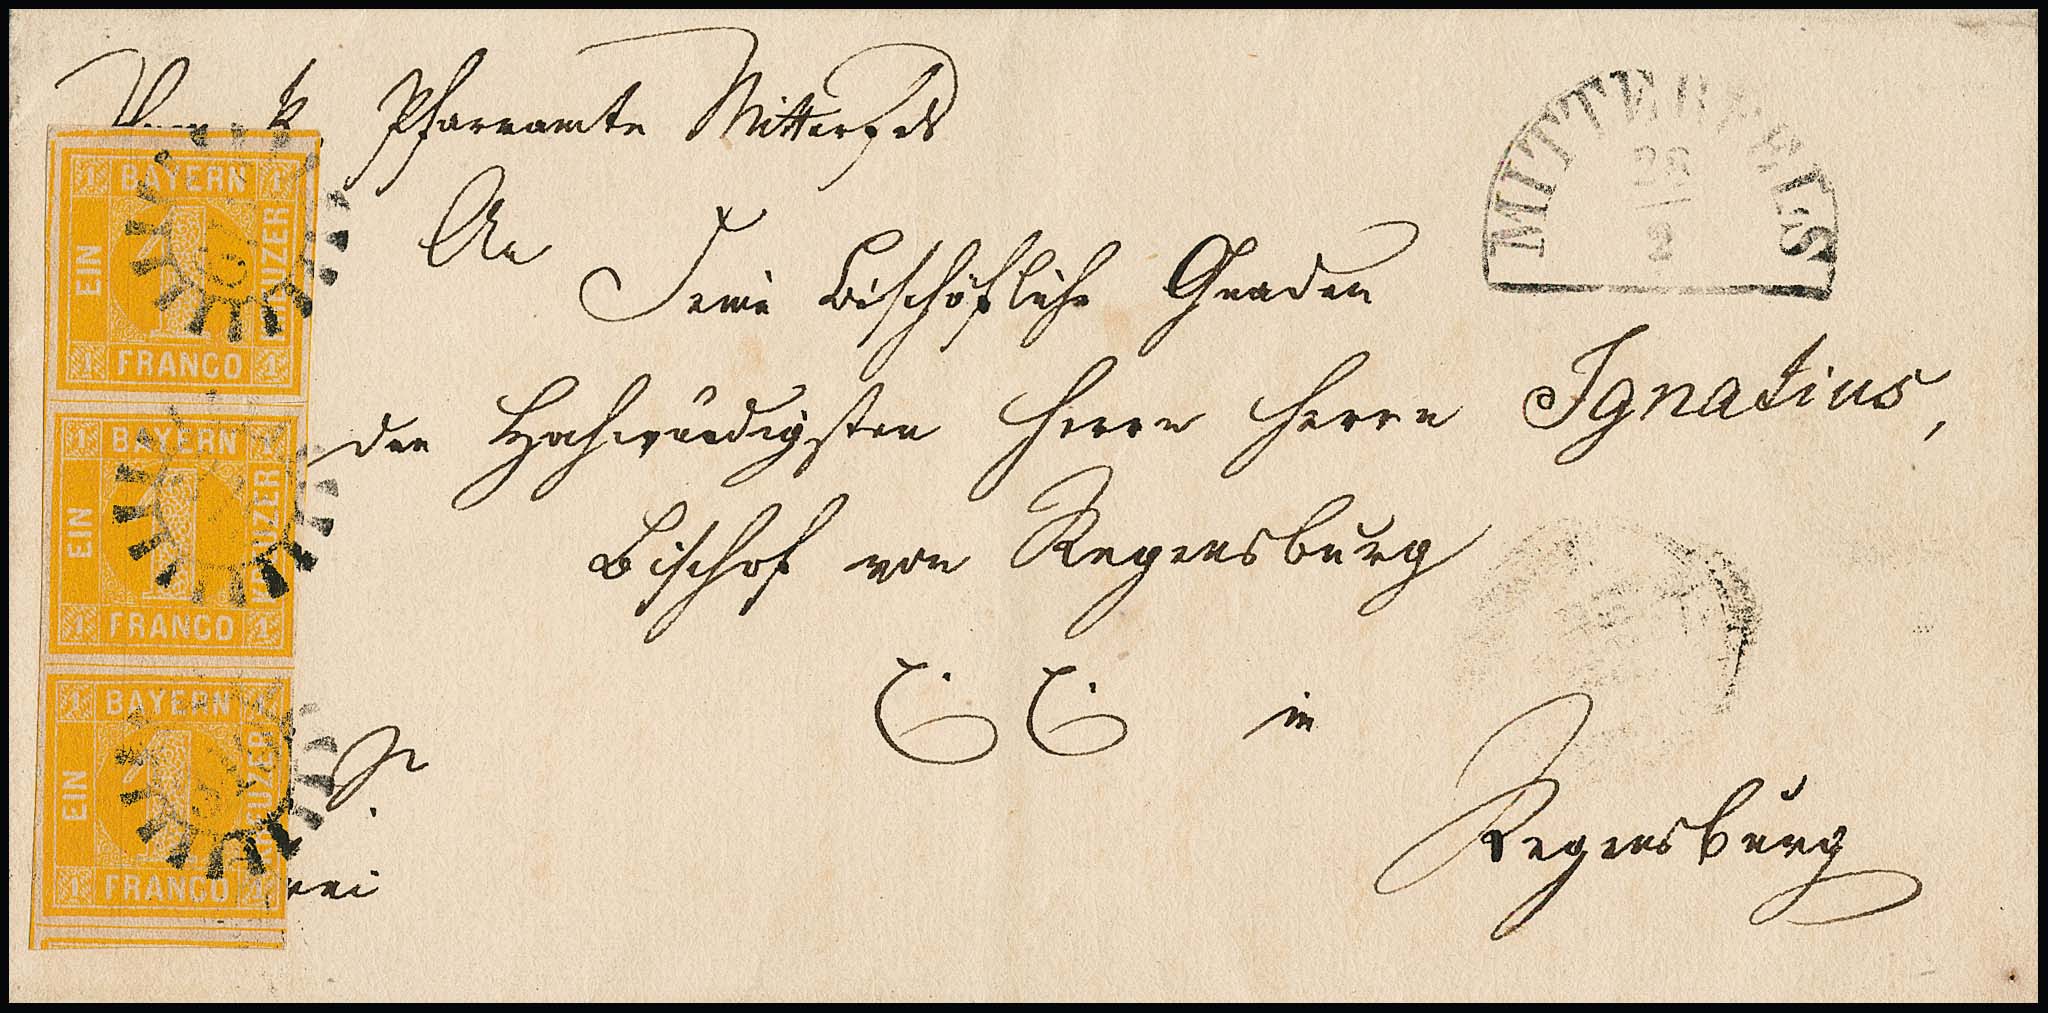 Vom k. Pfarramte Mitterfels
An
Seine Bischöfliche Gnaden
den Hochwürdigsten Herrn Herrn Ignatius,
Bischof von Regensburg
in
Regensburg
MITTERFELS
28
2
1 BAYERN 1
EIN
KREUZER
1 FRANCO 1
1 BAYERN 1
EIN
KREUZER
1 FRANCO 1
1 BAYERN 1
EIN
KREUZER
1 FRANCO 1